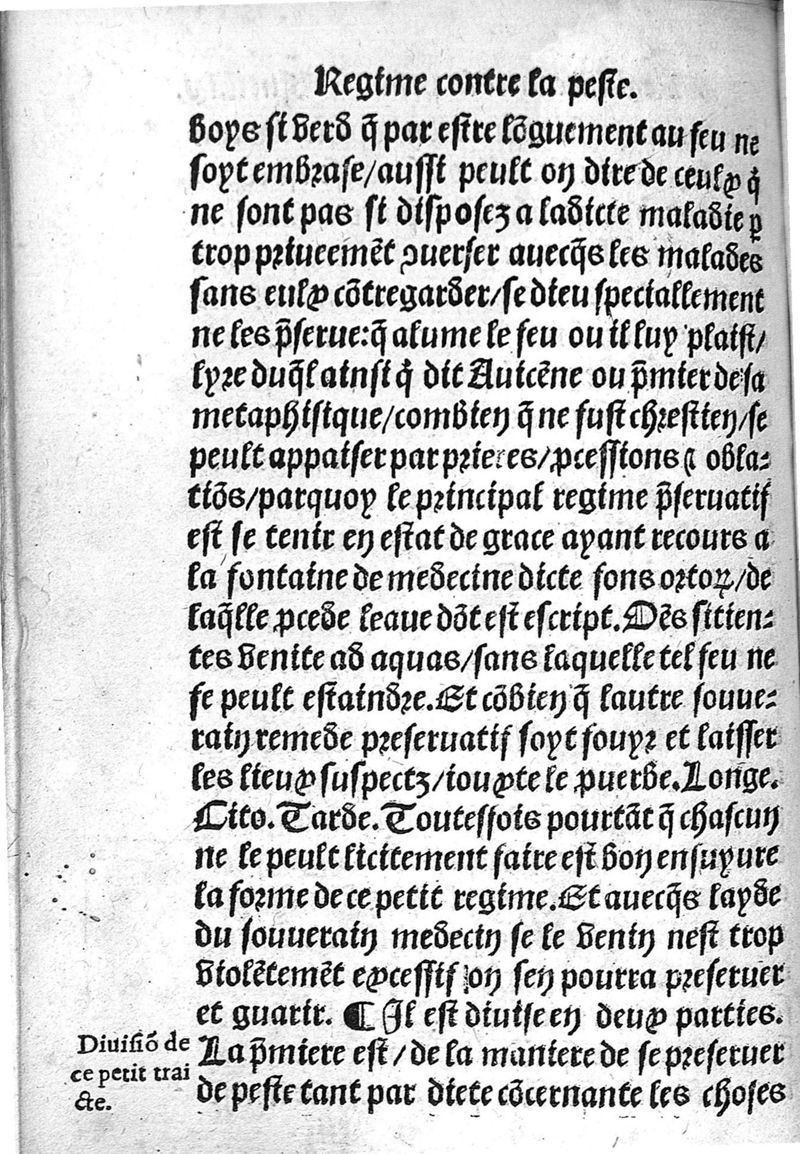 Regime contre la peste.
boys si verd q̃ par estre lõguement au feu ne
soyt embrase/aussi peult on dire de ceulx q̇
ne sont pas si disposez a ladicte maladie ꝑ
trop priueemẽt ꝯuerser auecq̃s les malades
sans eulx cõtregarder/se dieu speciallement
ne les p̃serue:q̃ alume le feu ou il luy plaist/
lyre duq̃l ainsi q̇ dit Auicẽne ou p̃mier de sa
metaphisique/combien q̃ ne fust chrestien/se
peult appaiser par prieres/ꝓcessions ⁊ obla-
tiõs/parquoy le principal regime p̃seruatif
est se tenir en estat de grace ayant recours a
la fontaine de medecine dicte fons ortoꝝ/de
laq̃lle ꝓcede leaue dõt est escript. Oẽs sitien-
tes venite ad aquas/sans laquelle tel feu ne
se peult estaindre. Et cõbien q̃ lautre souue-
rain remede preseruatif soyt fouyr et laisser
les lieux suspectz/iouxte le ꝓuerbe. Longe.
Cito. Tarde. Toutesfois pourtãt q̃ chascun
ne le peult licitement faire est bon ensuyure
la forme de ce petit regime. Et auecq̃s layde
du souuerain medecin se le venin nest trop
violẽtemẽt excessif on sen pourra preseruer
et guarir. ¶ Il est diuise en deux parties.
Diuisiõ de
ce petit trai
cte.
La p̃miere est/de la maniere de se preseruer
de peste tant par diete cõcernante les choses